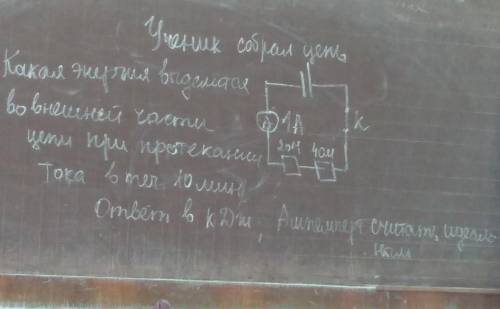 Ученик собрал цепь
Какая энергия выделется
во внешней части
цепи при протекании
Тока в теч. 10 мин
Ответ в кДж, Амперметр считать идеаль
ным
A 1A
K
2Ом 4Ом